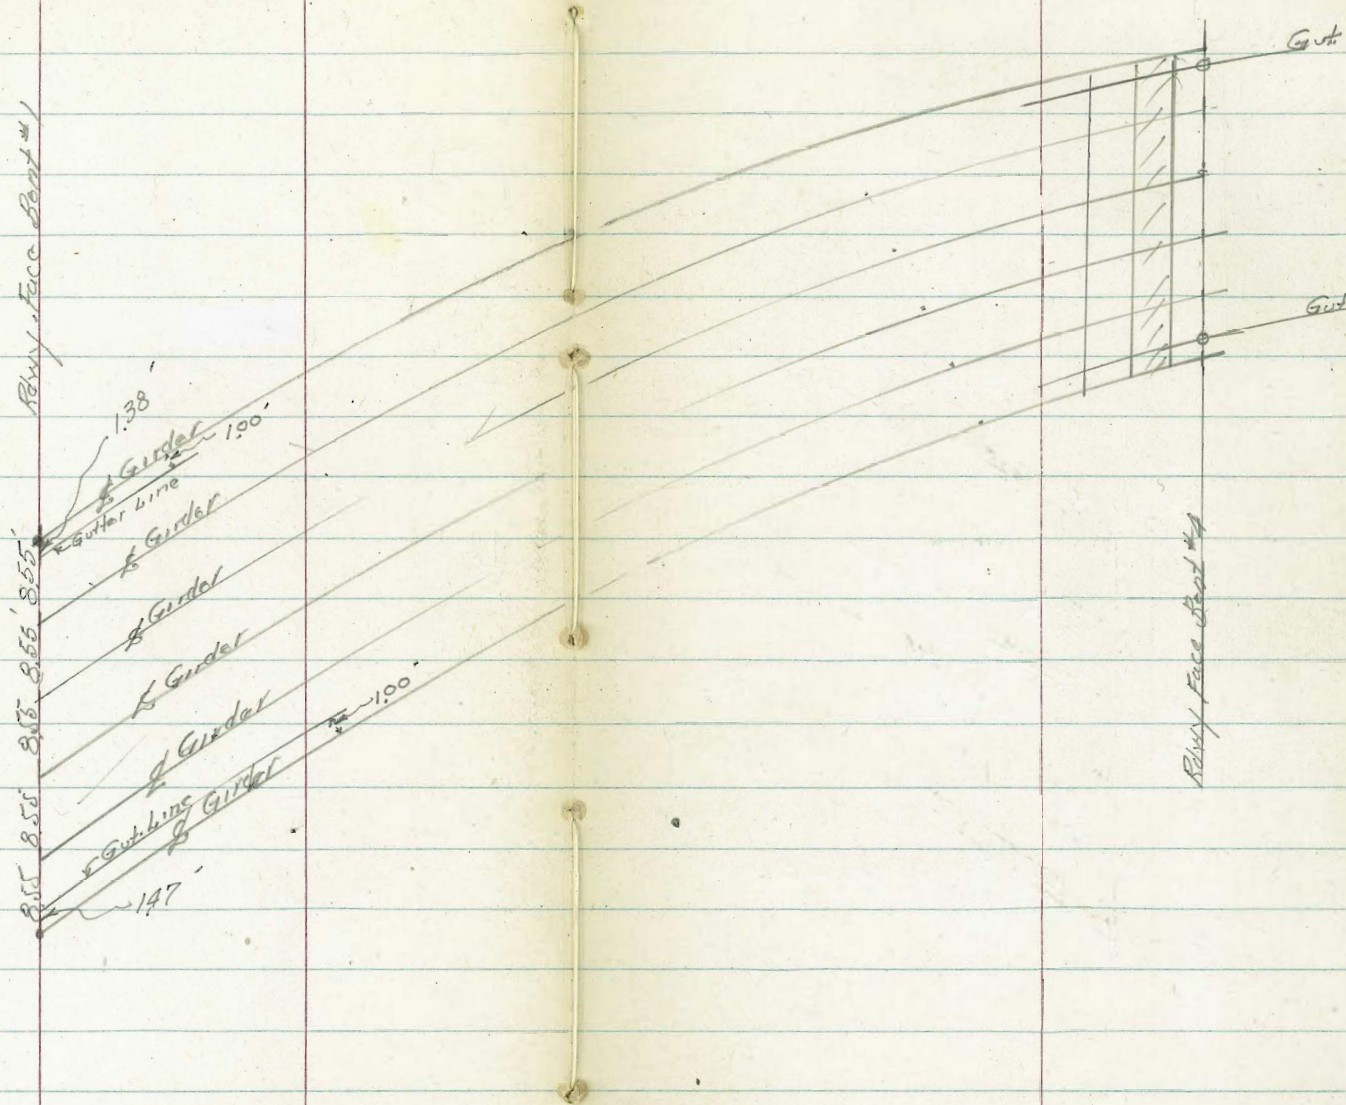 Rdwy. Face Bent #1
1.38'
℄ Girder
1.00'
Gutter Line
℄ Girder
℄ Girder
℄ Girder
℄ Girder
1.00'
Gut. Line
℄ Girder
1.47'
8.55'
8.55'
8.55
8.55
8.55
Gut
Gut
Rdwy Face Bent #4